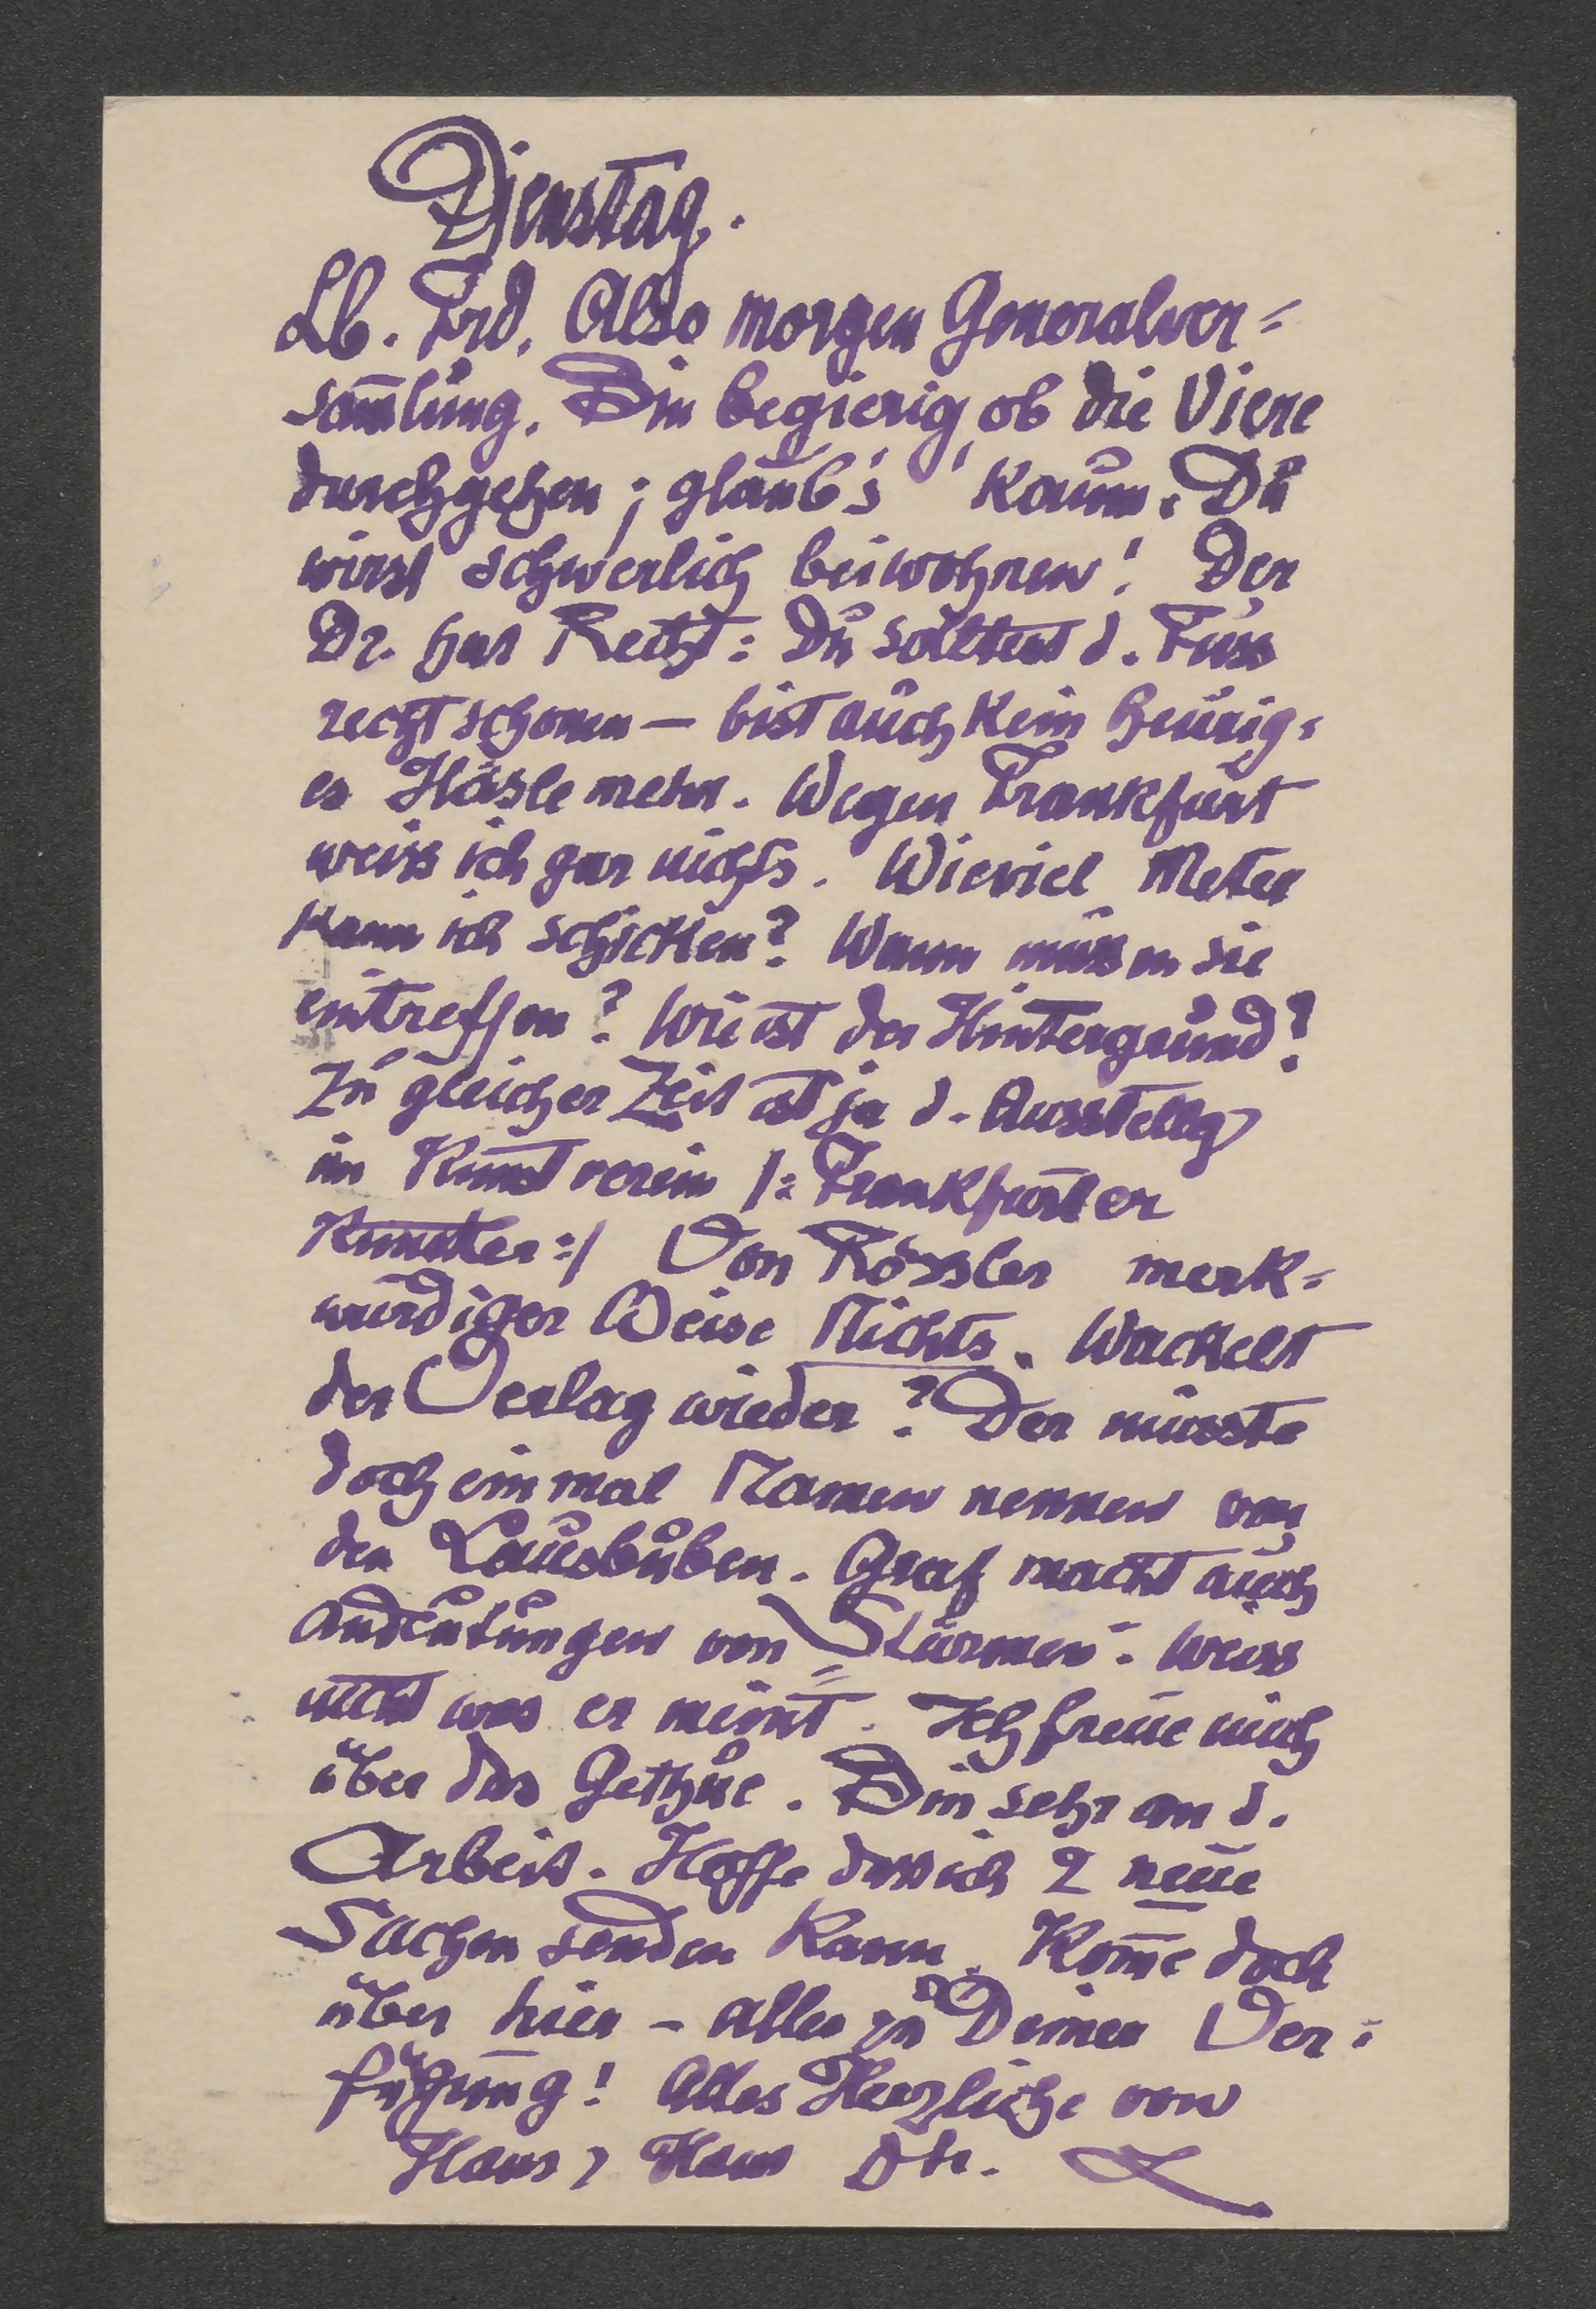 Dienstag.
Lb. Frd. Also morgen Generalver=
sam̄lung. Bin begierig ob die Viere
durchgehen; glaub's kaum. Du
wirst schwerlich beiwohnen! Der
Dr. hat Recht: Du solltest d. Fuss
recht schonen — bist auch kein heurig=
es Häsle mehr. Wegen Frankfurt
weiss ich gar nichts. Wieviel Meter
kann ich schicken? Wann müssen sie
eintreffen? Wie ist der Hintergrund?
Zu gleicher Zeit ist ja d. Ausstellg
im Kunstverein /: Frankfurter
Künstler :/ Von Rössler merk=
würdiger Weise Nichts. Wackelt
der Verlag wieder? Der müsste
doch einmal Namen nennen von
den Lausbuben. Graf macht auch
Andeutungen von „Stürmen". Weiss
nicht was er meint. Ich freue mich
über das Gethue. Bin sehr an d.
Arbeit. Hoffe dass ich 2 neue
Sachen senden kann. Kom̄e doch
über hier – alles zu Deiner Ver=
fügung! Alles Herzliche von
Haus z Haus Dr.